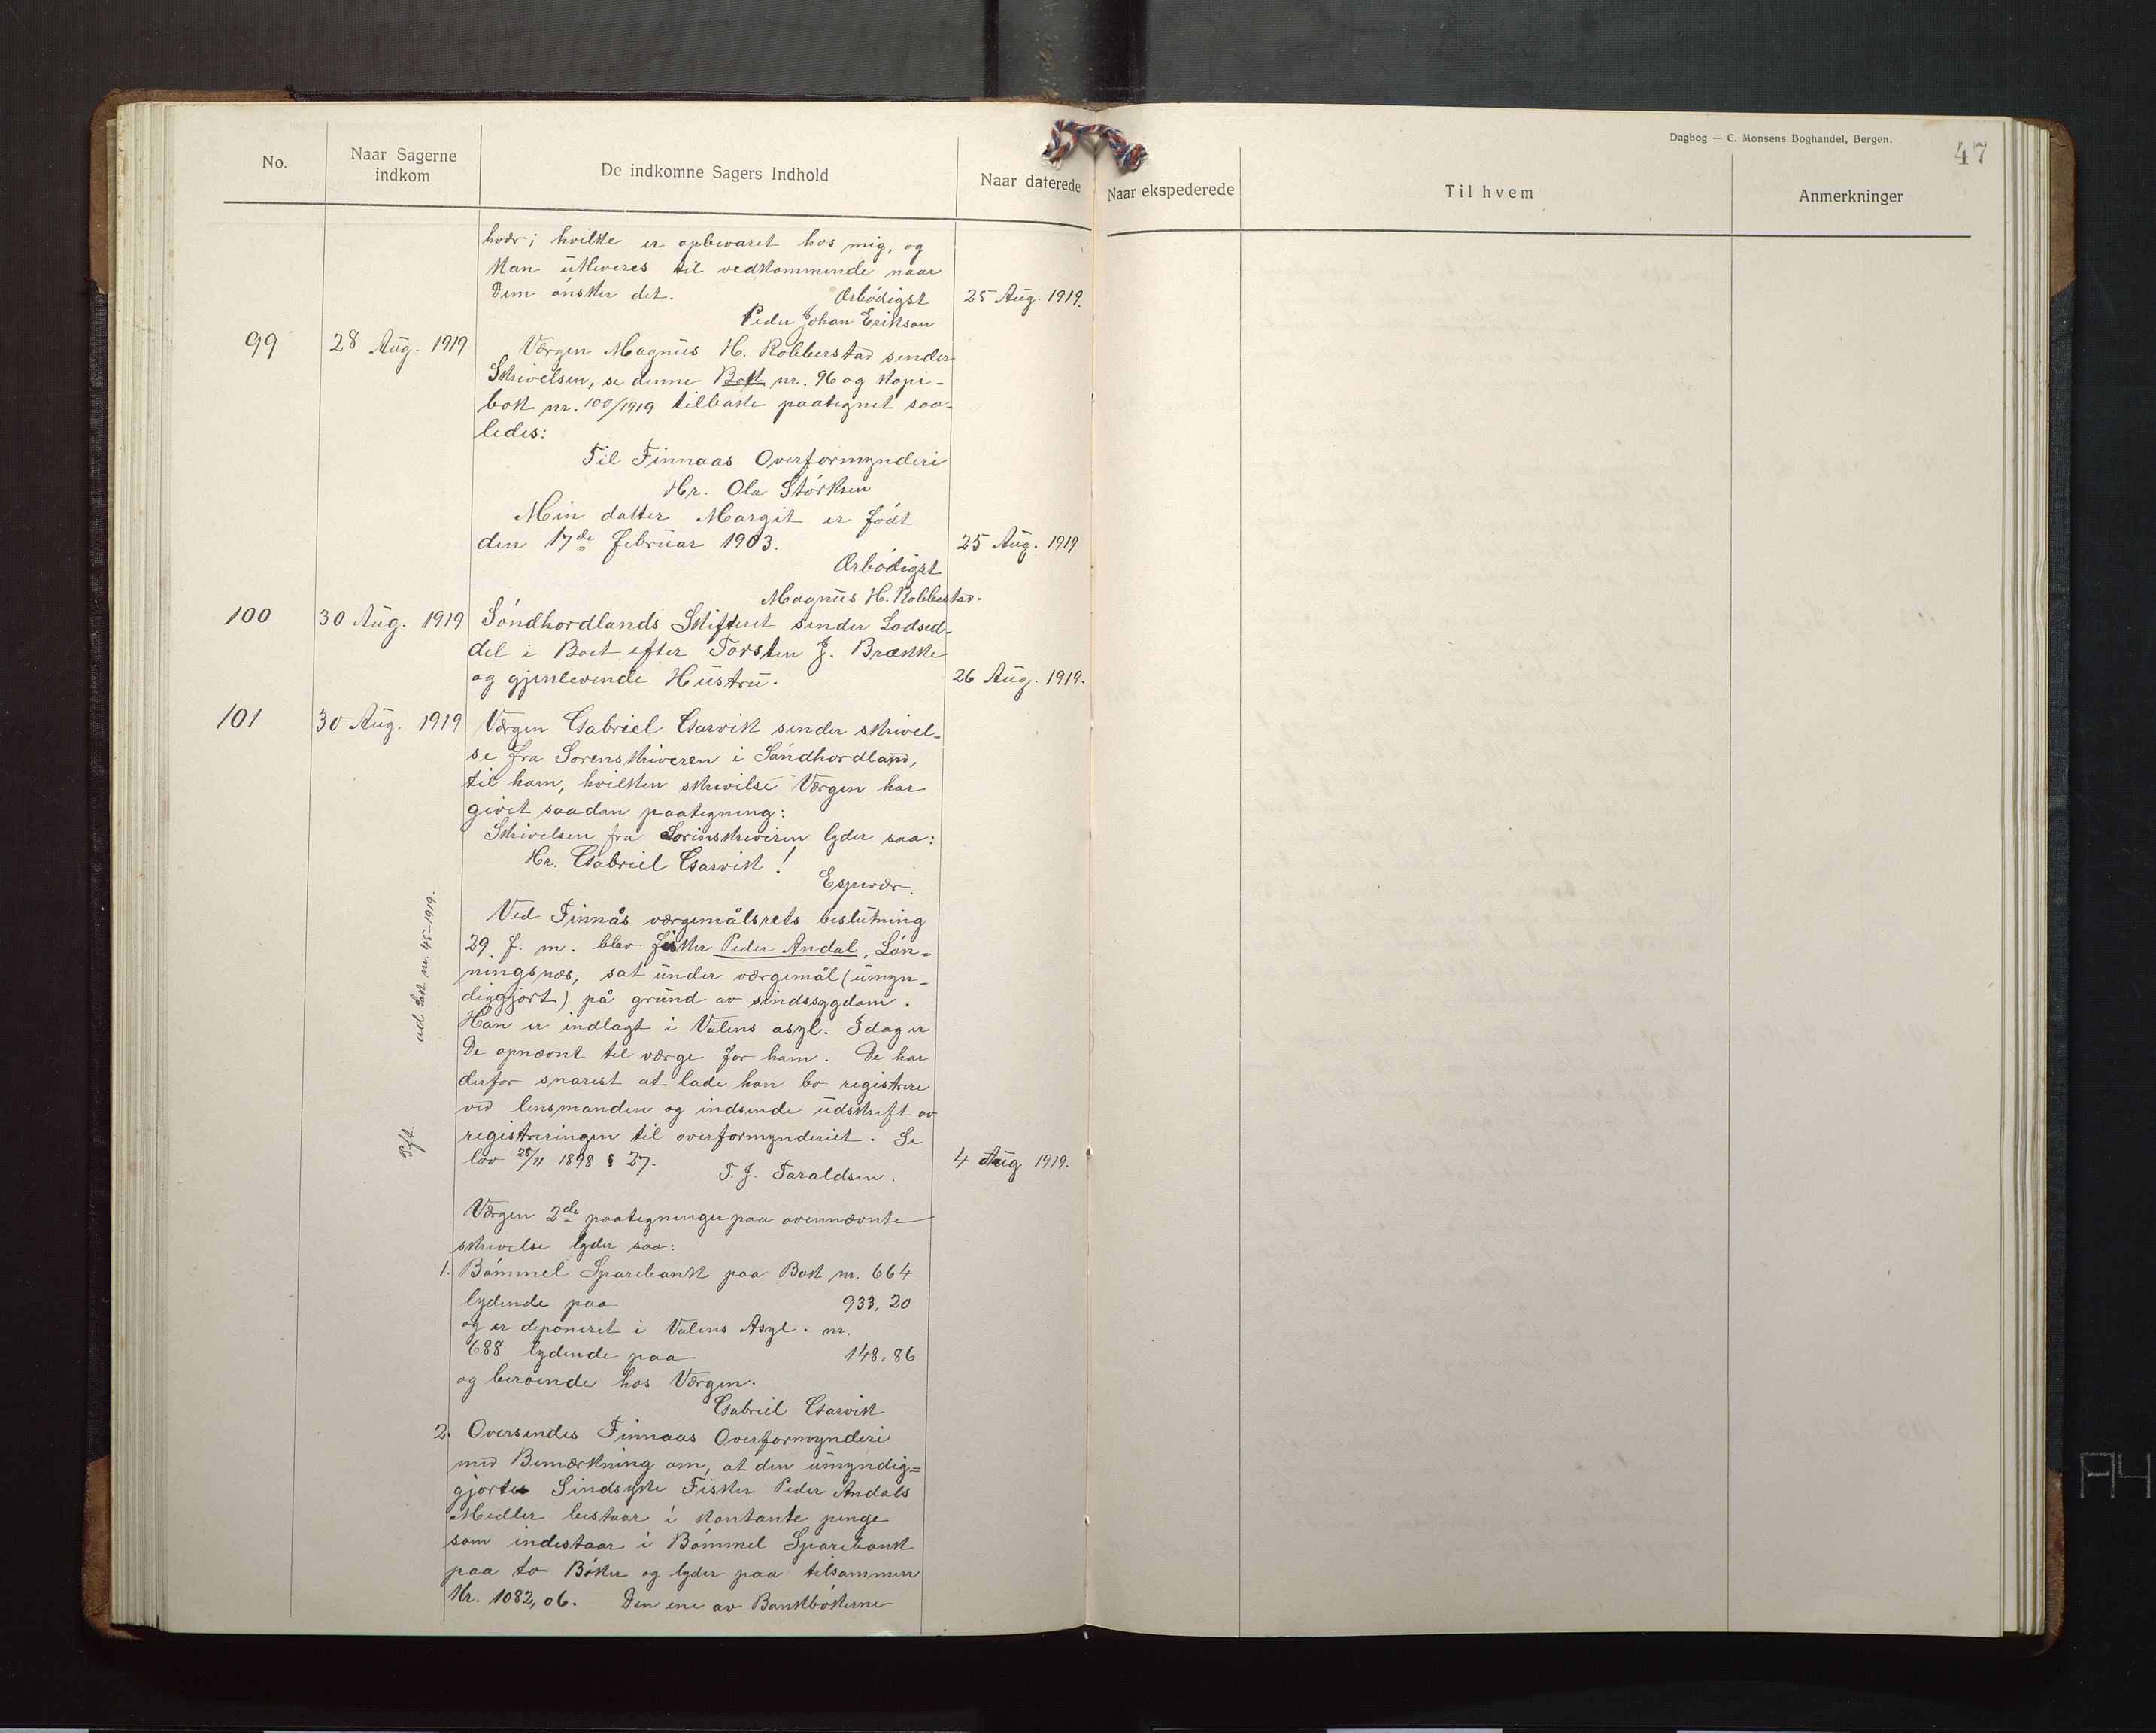 Dagbog — C. Monsens Boghandel, Bergen.
47
No.
Naar Sagerne indkom
De indkomne Sagers Indhold
Naar daterede
Naar ekspederede
Til hvem
Anmerkninger
hvær; hvilke er opbevaret hos mig, og
kan utleveres til vedkommende naar
Dem ønsker det. Ærbødigst 25 Aug. 1919.
Peder Johan Eriksen
99 28 Aug. 1919 Værgen Magnus H. Robberstad sender
Skrivelsen, se denne Bok nr. 96 og Kopi-
bok nr. 100/1919 tilbake paategnet saa-
ledes:
Til Finnaas Overformynderi
Hr. Ola Størksen
Min datter Margit er født
den 17de februar 1903. 25 Aug. 1919
Ærbødigst
Magnus H. Robberstad.
100 30 Aug. 1919 Søndhordlands Skifteret sender Lodsed-
del i Boet efter Torsten J. Brække
og gjenlevende Hustru. 26 Aug. 1919.
101 30 Aug. 1919 Værgen Gabriel Garvik sender skrivel-
se fra Sorenskriveren i Søndhordland,
til ham, hvilken skrivelse Værgen har
givet saadan paategning:
Skrivelsen fra Sorenskriveren lyder saa:
Hr. Gabriel Garvik!
Espevær.
Ved Finnås værgemålsrets beslutning
29. f. m. blev fisker Peder Andal, Løn-
ningsnæs, sat under værgemål (umyn-
diggjort) på grund av sindssygdom.
Han er indlagt i Valens asyl. Idag er
De opnævnt til værge for ham. De har
derfor snarest at lade han bo registrere
ved lensmanden og indsende udskrift av
registreringen til overformynderiet. Se
lov 28/11 1898 § 27. 4 Aug 1919.
T. J. Taraldsen.
ad Sak nr. 45-1919.
Værgen 2de paategninger paa ovennævnte
skrivelse lyder saa:
1. Bømmel Sparebank paa Bok nr. 664
lydende paa 933,20
og er deponeret i Valens Asyl. nr.
688 lydende paa 148,86
og beroende hos Værgen.
Gabriel Garvik
2. Oversendes Finnaas Overformynderi
med Bemærkning om, at den umyndig=
gjorte Sindsyke Fisker Peder Andals
Midler bestaar i kontante penge
som indestaar i Bømmel Sparebank
paa to Bøker og lyder paa tilsammen
Kr. 1082,06. Den ene av Bankbøkerne